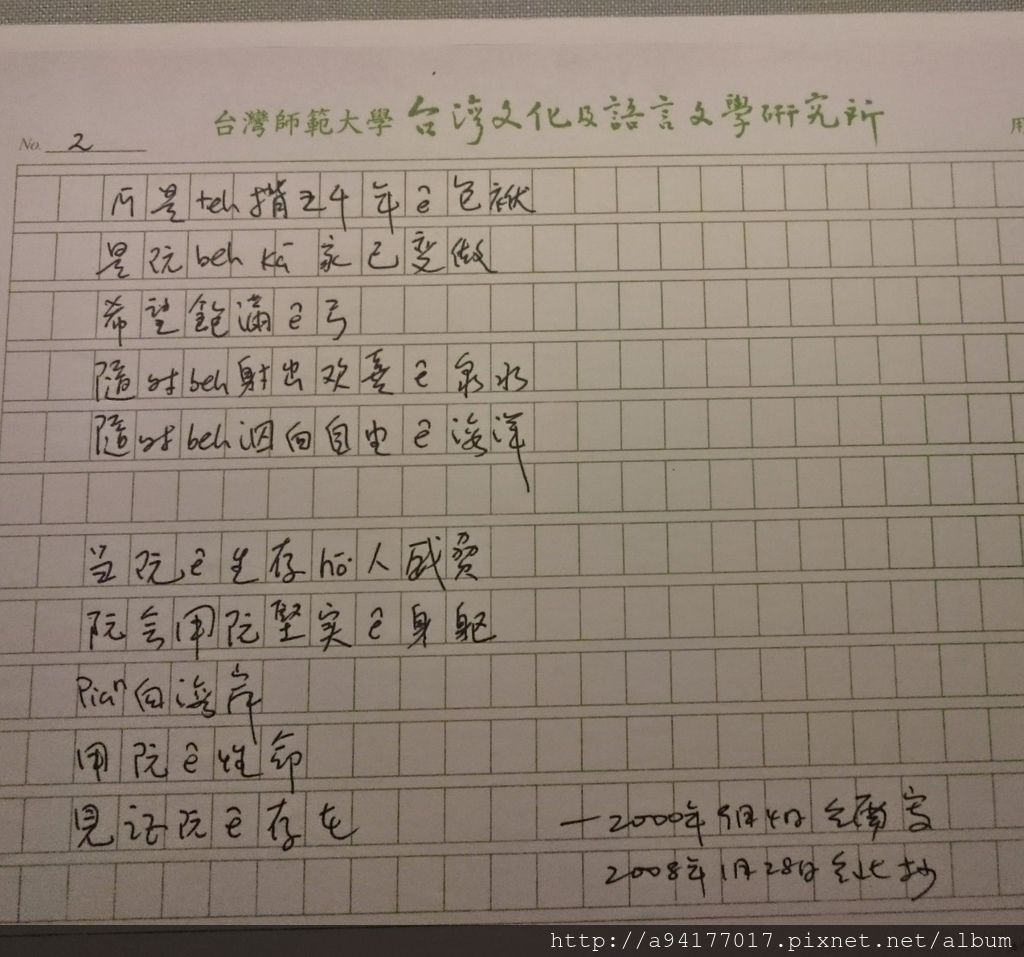 台灣師範大學 台灣文化及語言文學研究所 用
No. 2
m̄是teh揹五千年ê包袱
是阮beh kā 家己变做
希望飽滿ê弓
隨时beh射出欢喜ê泉水
隨时beh泅向自由ê海洋
当阮ê生存hō͘人
阮会用阮堅实ê身軀
Piàⁿ向海岸
用阮ê性命
見证阮ê存在
—2000年9月4日台南写
2008年1月28日台北抄
http://a94177017.pixnet.net/album